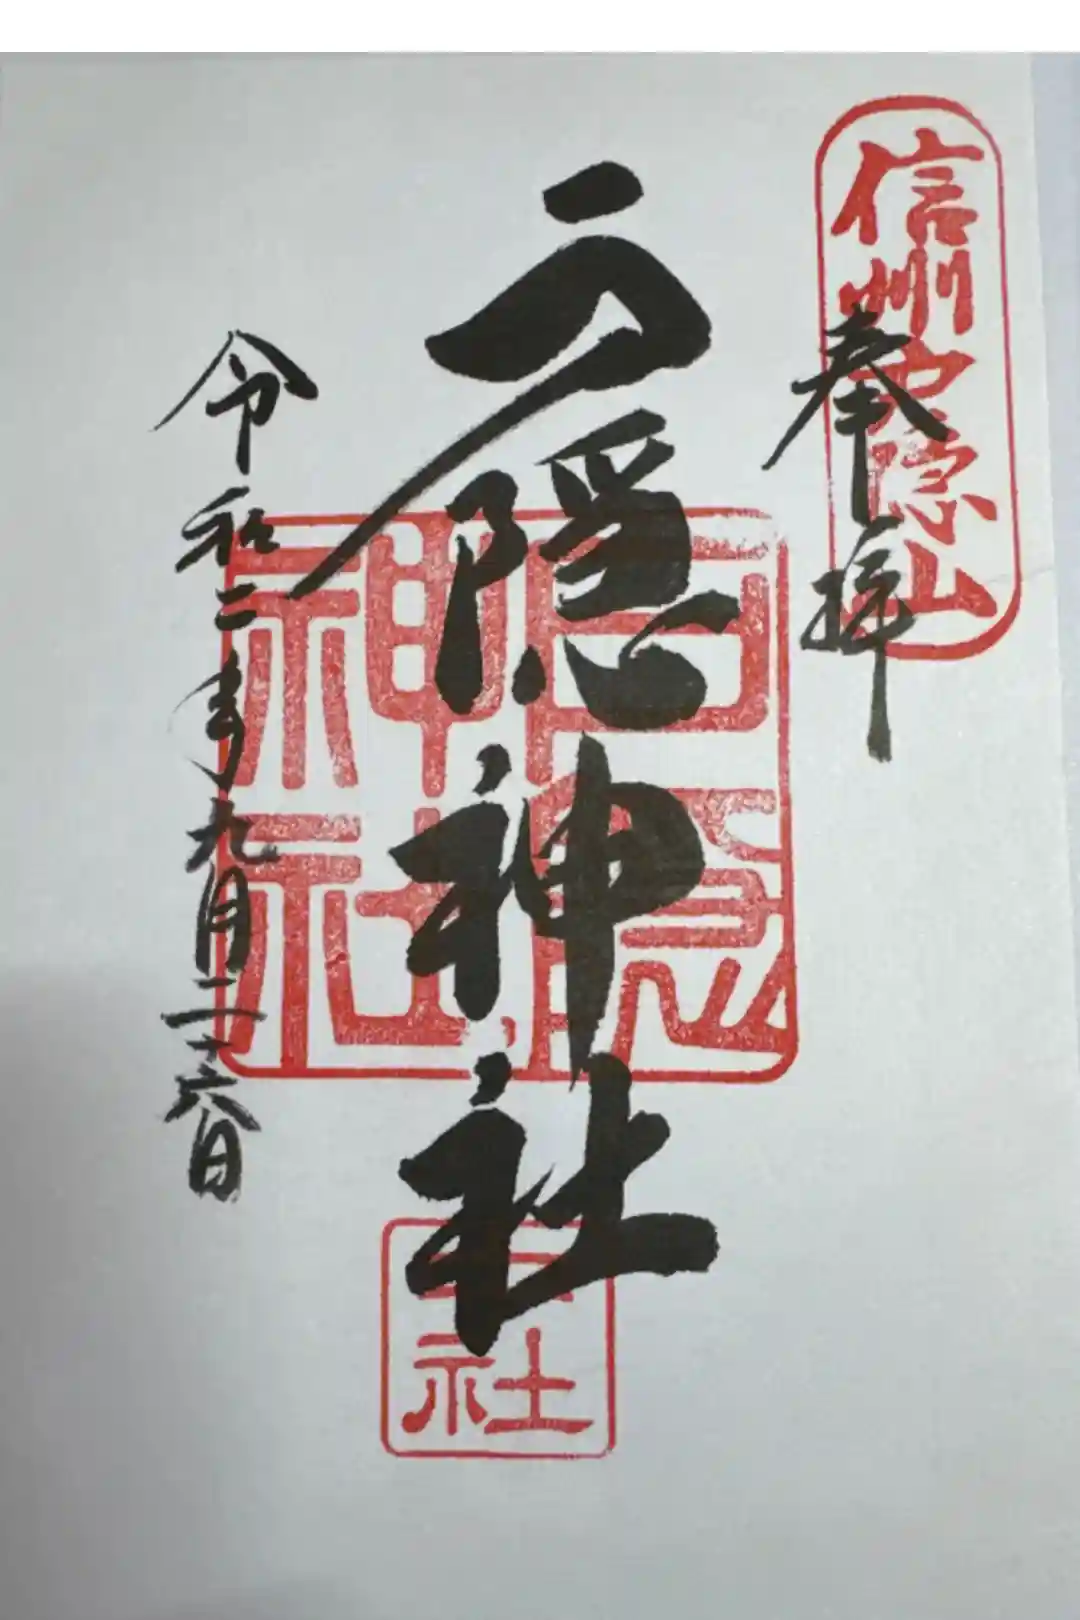 信州戸隠山
奉拝
戸隠神社
戸隠
神社
社
令和二年九月二十六日